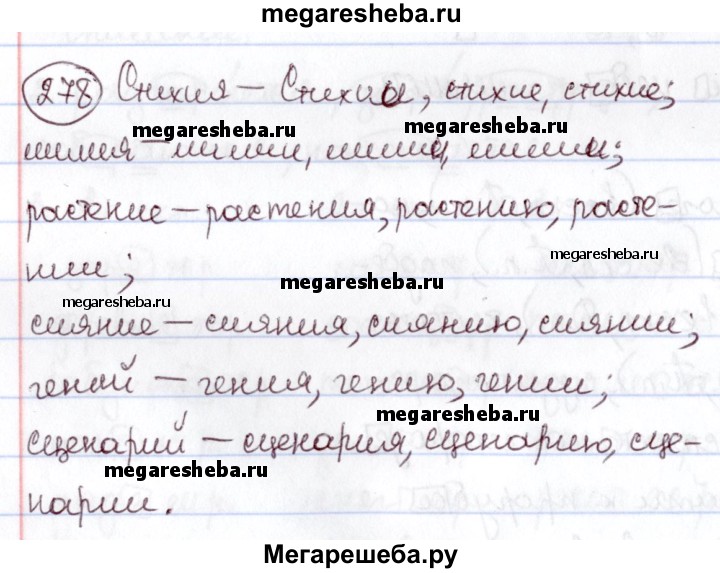 megaresheba.ru
278 Стихия – Стихии, стихие, стихие;
megaresheba.ru
линия – линии, линии, линии;
растение – растения, растению, расте-
megaresheba.ru
нии;
megaresheba.ru
megaresheba.ru
сияние – сияния, сиянию, сиянии;
гений – гения, гению, гении;
megaresheba.ru
сценарий – сценария, сценарию, сце-
megaresheba.ru
нарии.
Мегарешеба.ру